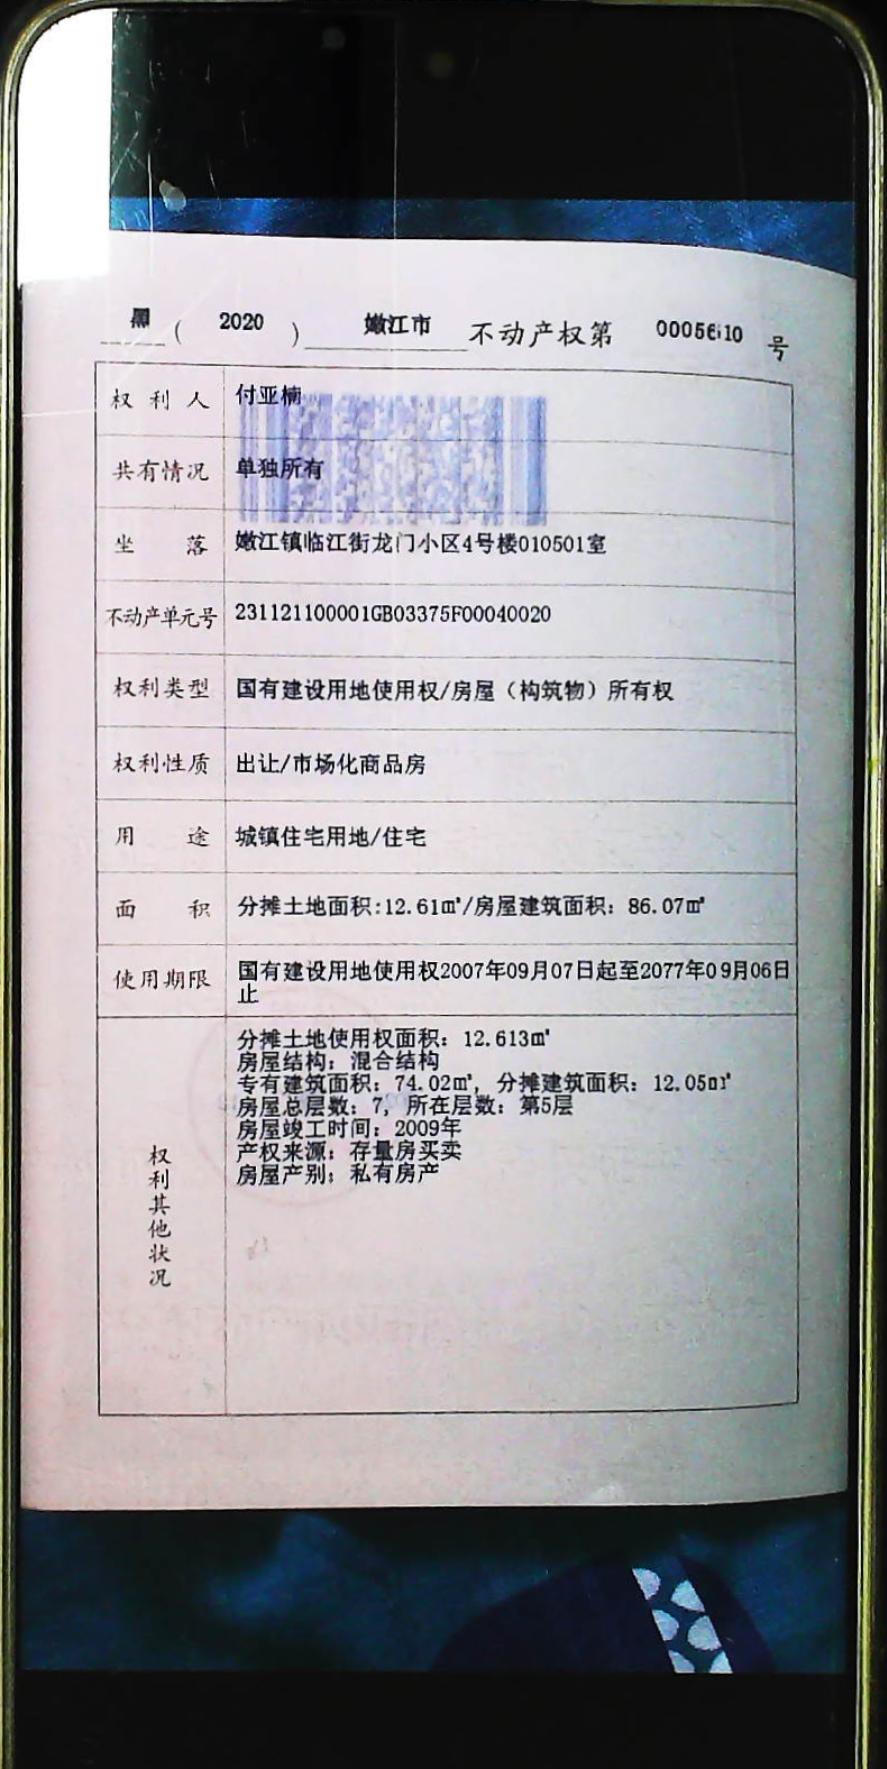 黑（2020）嫩江市 不动产权第 0005610 号
权利人 付亚楠
共有情况 单独所有
坐落 嫩江镇临江街龙门小区4号楼010501室
不动产单元号 231121100001GB03375F00040020
权利类型 国有建设用地使用权/房屋（构筑物）所有权
权利性质 出让/市场化商品房
用途 城镇住宅用地/住宅
面积 分摊土地面积:12.61㎡/房屋建筑面积：86.07㎡
使用期限 国有建设用地使用权2007年09月07日起至2077年09月06日
止
权利其他状况
分摊土地使用权面积：12.613㎡
房屋结构：混合结构
专有建筑面积：74.02㎡，分摊建筑面积：12.05㎡
房屋总层数：7，所在层数：第5层
房屋竣工时间：2009年
产权来源：存量房买卖
房屋产别：私有房产